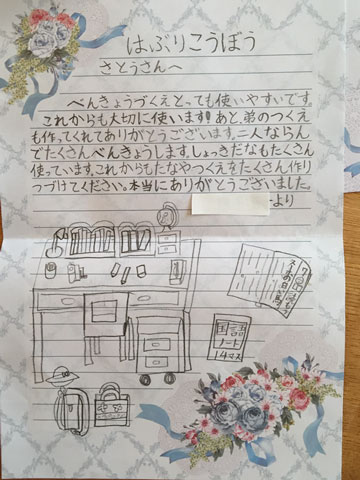 はぶりこうぼう
さとうさんへ
べんきょうづくえとっても使いやすいです。
これからも大切に使います!あと、弟のつくえ
も作ってくれてありがとうございます。二人ならん
でたくさんべんきょうします。しょっきだなもたくさん
使っています。これからもたなやつくえをたくさん作り
つづけてください。本当にありがとうございました。
より
国語
ノート
14マス